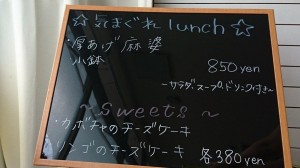 ☆気まぐれ lunch☆
・厚あげ麻婆
小鉢
850yen
~サラダ、スープ、ドリンク付き~
~Sweets~
・カボチャのチーズケーキ
・リンゴのチーズケーキ 各380yen